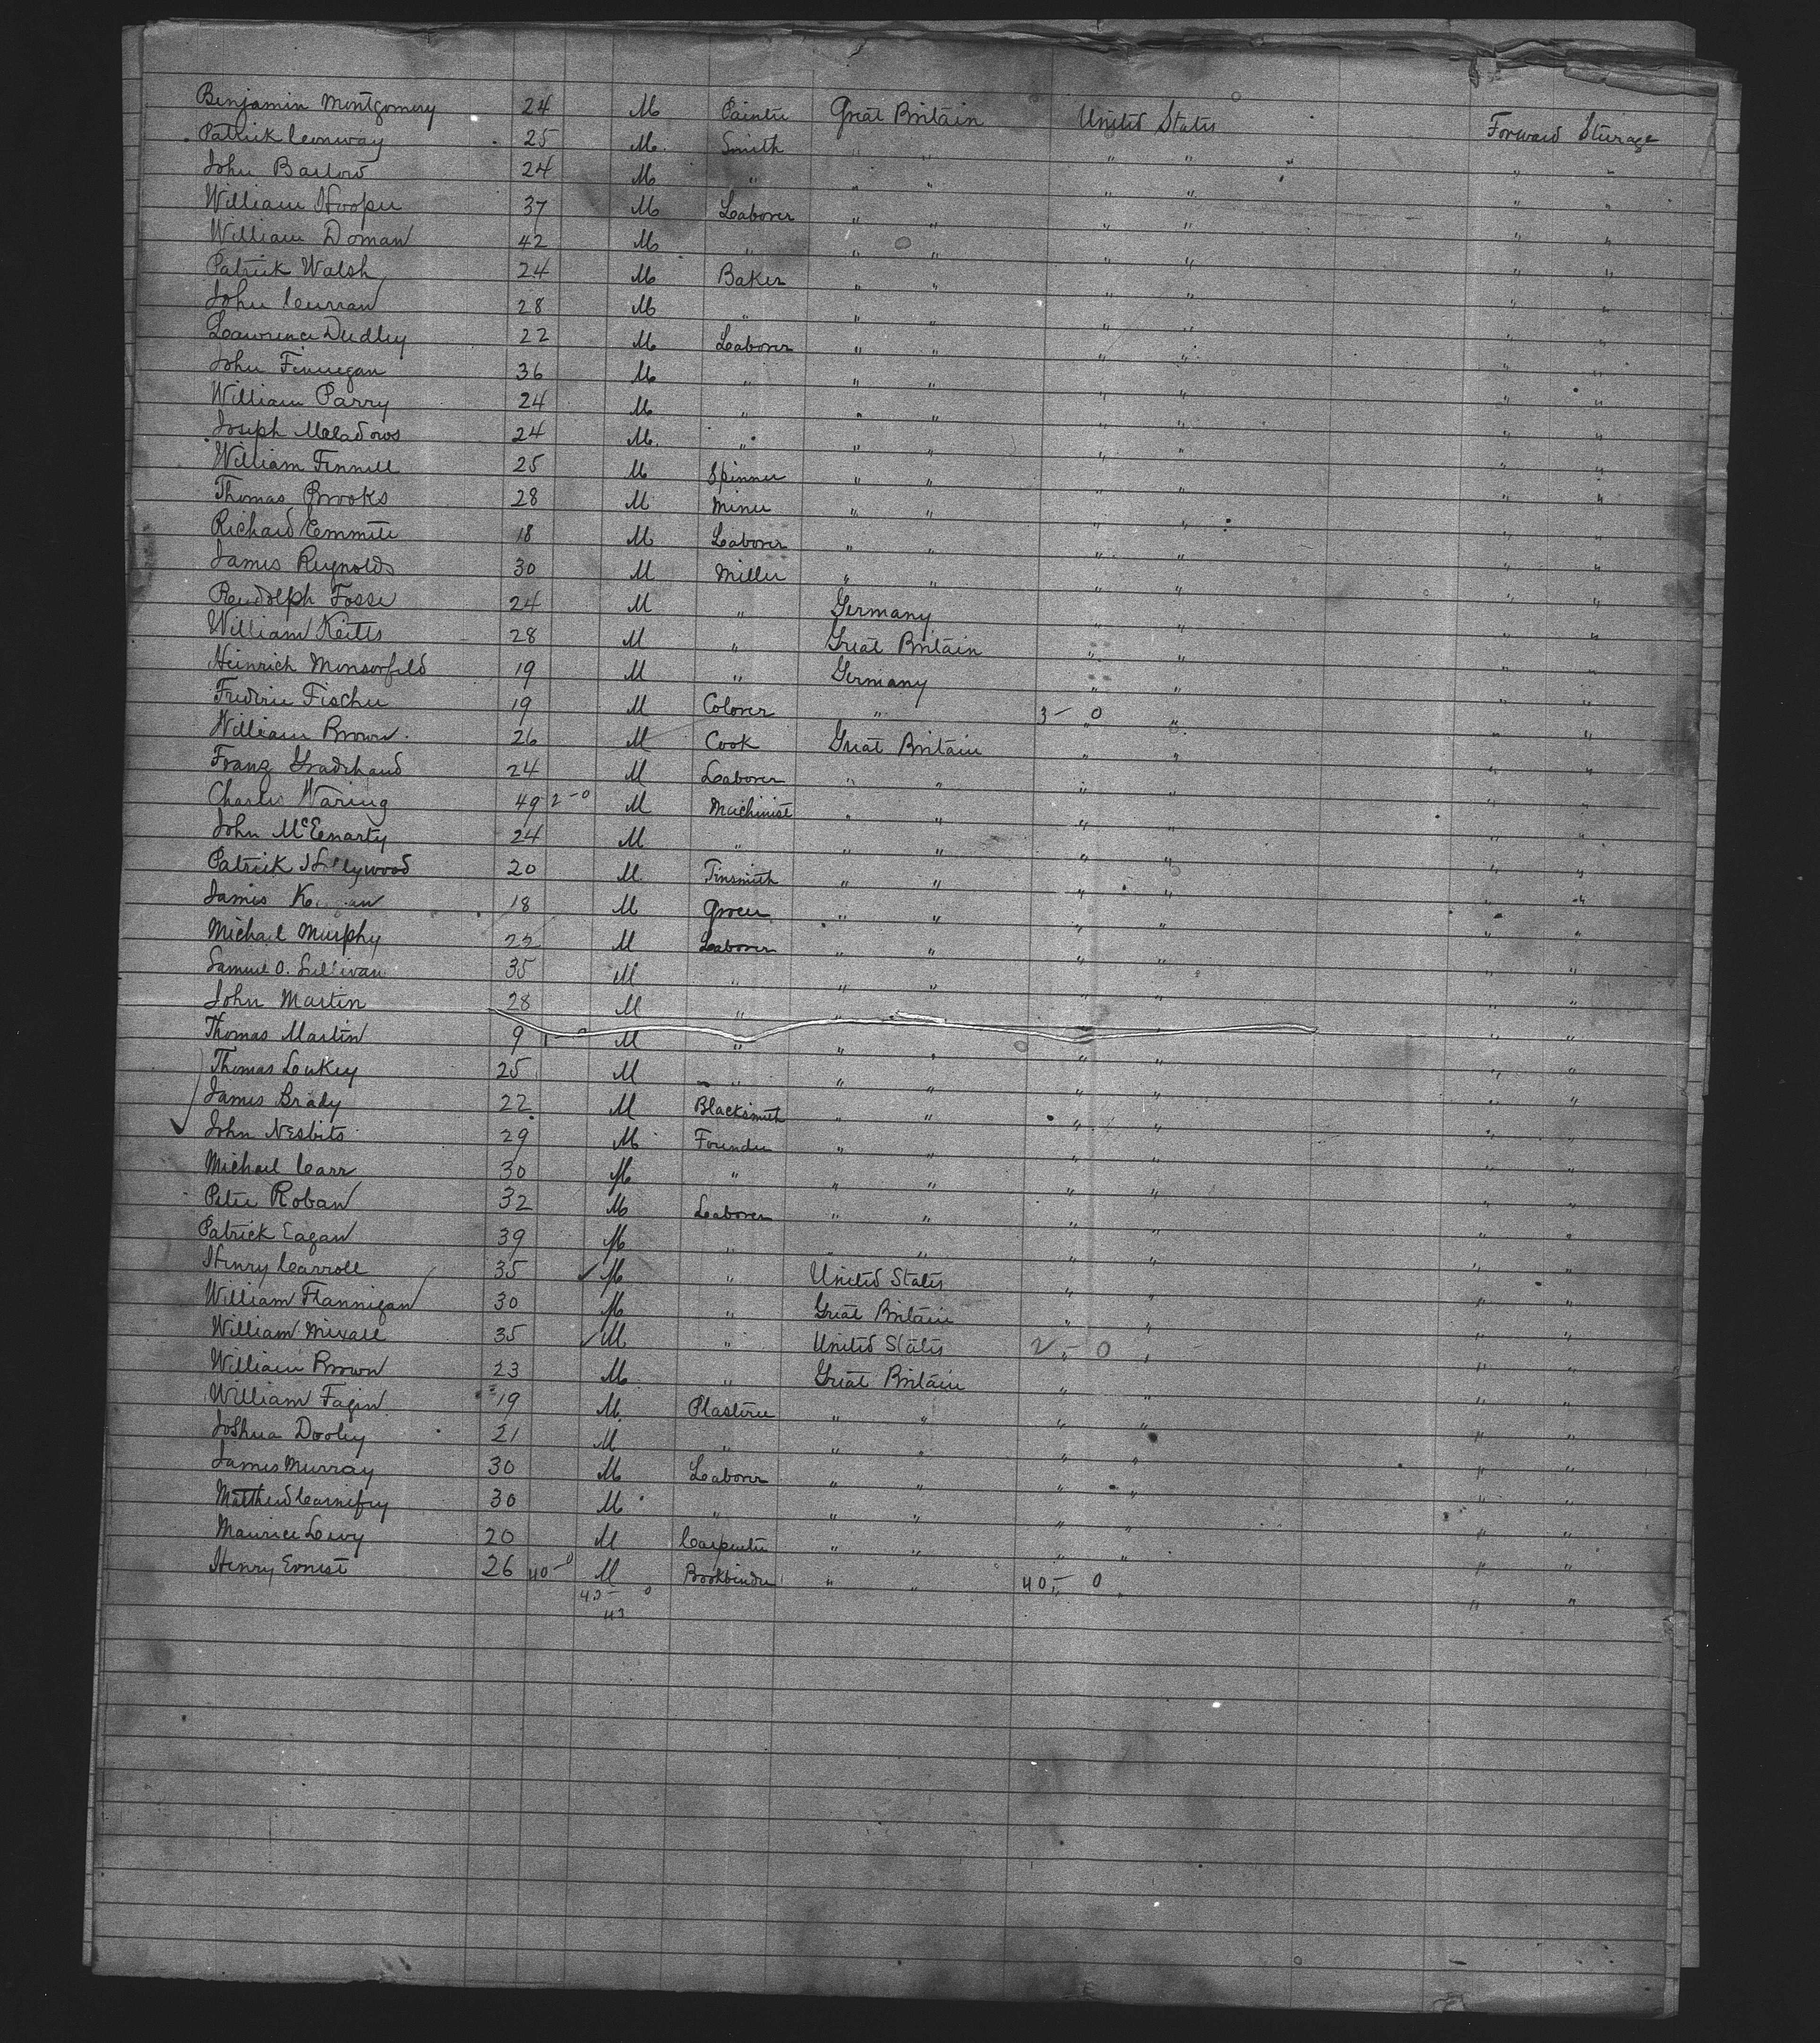 Benjamin Montgomery 24 M Painter Great Britain United States Forward Steerage
Patrick Conway 25 M. Smith " " " " " "
John Barlow 24 M " " " " " " "
William Hooper 37 M Laborer " " " " " "
William Doman 42 M " " " " " " "
Patrick Walsh 24 M Baker " " " " " "
John Curran 28 M " " " " " " "
Lawrence Dudley 22 M Laborer " " " " " "
John Finnegan 36 M " " " " " " "
William Parry 24 M " " " " " " "
Joseph Meladows 24 M. " " " " " " "
William Fennell 25 M Spinner " " " " " "
Thomas Brooks 28 M Miner " " " " " "
Richard Emmite 18 M Laborer " " " " " "
James Reynolds 30 M Miller " " " " " "
Rudolph Fosse 24 M " Germany " " " "
William Keitts 28 M " Great Britain " " " "
Heinrich Monsorfeld 19 M " Germany " " " "
Frederic Fischer 19 M Colorer " 3 - 0 " " " "
William Brown. 26 M Cook Great Britain " " " "
Franz 24 M Laborer " " " " " "
Charles Waring 49 2 - 0 M Machinist " " " " " "
John McEenarty 24 M " " " " " " "
Patrick Hollywood 20 M Tinsmith " " " " " "
James 18 M Grocer " " " " " "
Michael Murphy 22 M Laborer " " " " " "
Samuel O. Sullivan 35 M " " " " " " "
John Martin 28 M " " " " " "
Thomas Martin 9 1 - 0 M " " " " " " "
Thomas Leakey 25 M " " " " " " "
James Brady 22 M Blacksmith " " " " " "
John Nesbits 29 M Founder " " " " " "
Michael Carr 30 M " " " " " " "
Peter Roban 32 M Laborer " " " " " "
Patrick Eagan 39 M " " " " " " "
Henry Carroll 35 ✓ M " United States " " " "
William Flannigan 30 M " Great Britain " " " "
William Mixall 35 ✓ M " United States 2 - 0 " " " "
William Brown 23 M " Great Britain " " " "
William Fagin 19 M. Plasterer " " " " " "
Joshua Dooley 21 M " " " " " " "
James Murray 30 M Laborer " " " " " "
Matthew 30 M " " " " " " "
Maurice Levy 20 M Carpenter " " " " " "
Henry Ernest 26 40 - 0 M Bookbinder " " 40 - 0 " " " "
43 - 0
43